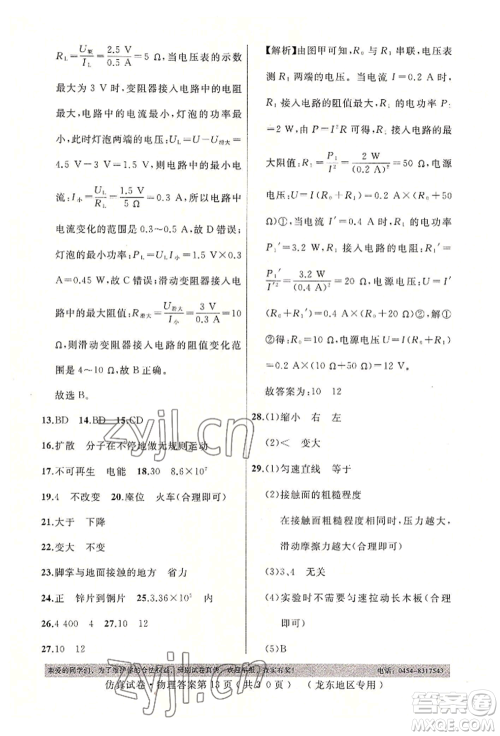 R_L = U_额/I_L = 2.5 V/0.5 A = 5 Ω，当电压表的示数
最大为 3 V 时，变阻器接入电路中的电阻最
大，电路中的电流最小，灯泡的功率最
小，此时灯泡两端的电压：U_L = U − U_滑大 =
4.5 V − 3 V = 1.5 V，电路中的最小电
流：I_小 = U_L/R_L = 1.5 V/5 Ω = 0.3 A，所以，电路中
电流变化的范围是 0.3～0.5 A，故 D 错误；
灯泡的最小功率：P_L小 = U_L I_小 = 1.5 V × 0.3
A = 0.45 W，故 C 错误；滑动变阻器接入电
路中的最大阻值：R_滑大 = U_滑大/I_小 = 3 V/0.3 A = 10
Ω，则滑动变阻器接入电路的阻值变化范围
是 4～10 Ω，故 A 错误。
故选 B。
13.BD 14.BD 15.CD
16.扩散 分子在不停地做无规则运动
17.不可再生 电能 18.30 8.6×10⁷
19.4 不改变 20.座位 火车(合理即可)
21.大于 下降
22.变大 不变
23.脚掌与地面接触的地方 省力
24.正 锌片到铜片 25.3.36 13.44
26.4 400 4
27.10 12
【解析】由图甲可知，R₀ 与 R₁ 串联，电压表
测量 R₁ 两端的电压。当电流 I = 0.2 A 时，
R₁ 接入电路的阻值最大，R₁ 的电功率 P₁ =
2 W，由 P = I²R 可知，R₁ 接入电路的最
大阻值：R₁ = P₁/I² = 2 W/(0.2 A)² = 50 Ω，电源
电压：U = I(R₀ + R₁) = 0.2 A × (R₀ + 50
Ω)①，当电流 I′ = 0.4 A 时，R₁ 的电功率
P₁′ = 3.2 W，R₁ 接入电路的阻值：R₁′ =
P₁′/I′² = 3.2 W/(0.4 A)² = 20 Ω，电源电压：U = I′(R₀
+ R₁′) = 0.4 A × (R₀ + 20 Ω)②，由①②可得：
R₀ = 10 Ω，电源电压：U = 0.2 A × (10 Ω + 50
Ω) = 12 V。
故答案为：10 12
28.(1)缩小 右 左
(2)< 变大
29.(1)匀速直线 等于
(2)接触面的粗糙程度
在接触面的粗糙程度相同时，压力越大，
滑动摩擦力越大(合理即可)
(3)3.4 无关
(4)实验中不需要匀速拉动长木板(合
理即可)
亲爱的同学们，为了维护您的合法权益，识别试卷真伪，欢迎举报，我实有奖! 电话：0454-8317543
仿真试卷·物理答案第13页(共20页) (龙东地区专用)
zyjl.cn
答案圈
MXQE.COM